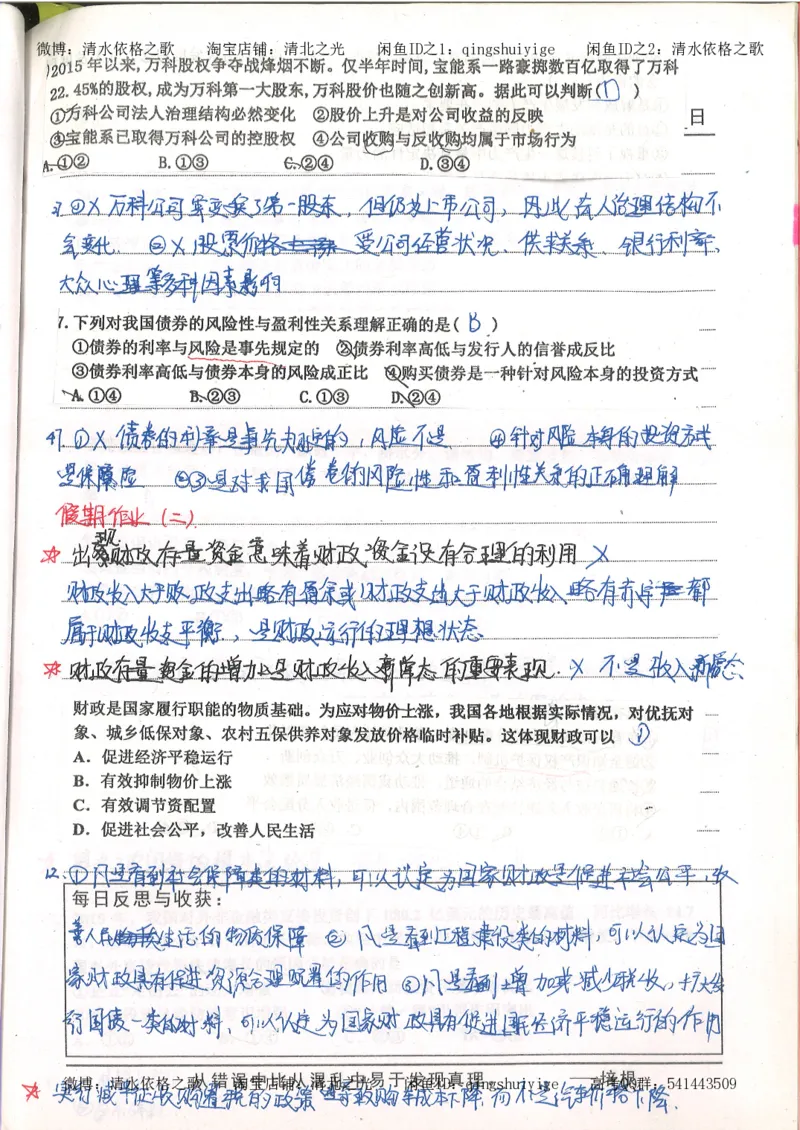 微博：清水依格之歌 淘宝店铺：清北之光 闲鱼ID之1：qingshuiyige 闲鱼ID之2：清水依格之歌
2015年以来,万科股权争夺战烽烟不断。仅半年时间,宝能系一路豪掷数百亿取得了万科
22.45%的股权,成为万科第一大股东,万科股价也随之创新高。据此可以判断( D )
①万科公司法人治理结构必然变化 ②股价上升是对公司收益的反映
日
③宝能系已取得万科公司的控股权 ④公司收购与反收购均属于市场行为
A.①② B.①③ C.②④ D.③④
①X 万科公司 变更了第一股东，但仍为上市公司，因此法人治理结构不
会变化. ②X 股票价格 受公司经营状况、供求关系、银行利率、
大众心理等多种因素影响
7.下列对我国债券的风险性与盈利性关系理解正确的是( B )
①债券的利率与风险是事先规定的 ②债券利率高低与发行人的信誉成反比
③债券利率高低与债券本身的风险成正比 ④购买债券是一种针对风险本身的投资方式
A.①④ B.②③ C.①③ D.②④
47. ①X 债券的利率是事先规定的，风险不是 ④针对风险本身的投资方式
是保险 ②③是对我国债券的风险性和盈利性关系的正确理解
假期作业（二）
☆ 出现财政存量资金意味着财政资金没有合理的利用 X
财政收入大于财政支出略有盈余或财政支出大于财政收入略有赤字 都
属于财政收支平衡，是财政运行的理想状态
☆ 财政存量资金的增加是财政收入新常态的重要表现. X 不是收入新常态
财政是国家履行职能的物质基础。为应对物价上涨，我国各地根据实际情况，对优抚对
象、城乡低保对象、农村五保供养对象发放价格临时补贴。这体现财政可以 D
A．促进经济平稳运行
B．有效抑制物价上涨
C．有效调节资配置
D．促进社会公平，改善人民生活
12. ①凡是看到社会保障类的材料，可以认定为国家财政是促进社会公平、改
每日反思与收获：
善人民生活的物质保障 ②凡是看到工程建设类的材料，可以认定为国
家财政具有促进资源合理配置的作用 ③凡是看到增加或减少税收、扩大发
行国债一类的材料，可以认定为国家财政具有促进 经济平稳运行的作用
从错误中比从混乱中易于发现真理 ——培根
微博：清水依格之歌 淘宝店铺：清北之光 闲鱼ID：qingshuiyige 群：541443509
☆ 实行减半征收购置税的政策 导致购车成本下降，而不是汽车价格下降.